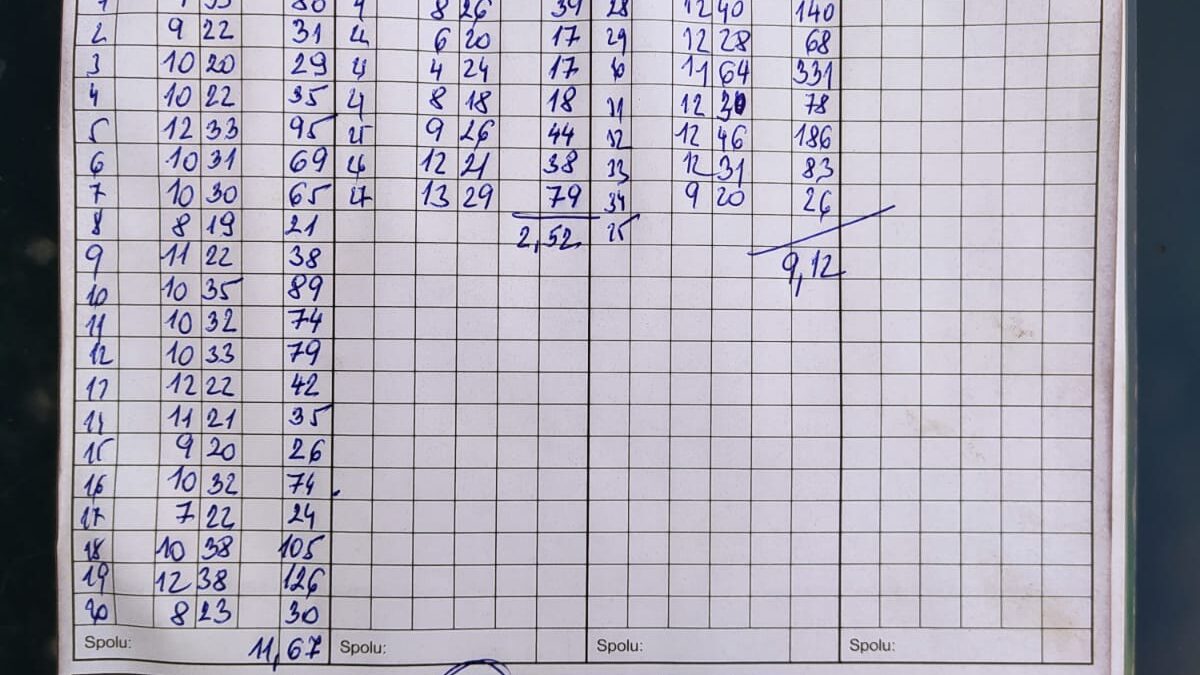 80 8 26 39 28 12 40 140
2 9 22 31 6 20 17 29 12 28 68
3 10 20 29 4 24 17 11 64 331
4 10 22 35 8 18 18 31 12 30 78
5 12 33 95 9 26 44 32 12 46 186
6 10 31 69 12 21 38 33 12 31 83
7 10 30 65 13 29 79 34 9 20 26
8 8 19 21 2,52
9 11 22 38 9,12
10 10 35 89
11 10 32 74
12 10 33 79
13 12 22 42
14 11 21 35
15 9 20 26
16 10 32 74
17 7 22 24
18 10 38 105
19 12 38 126
20 8 23 30
Spolu: 11,67 Spolu: Spolu: Spolu: